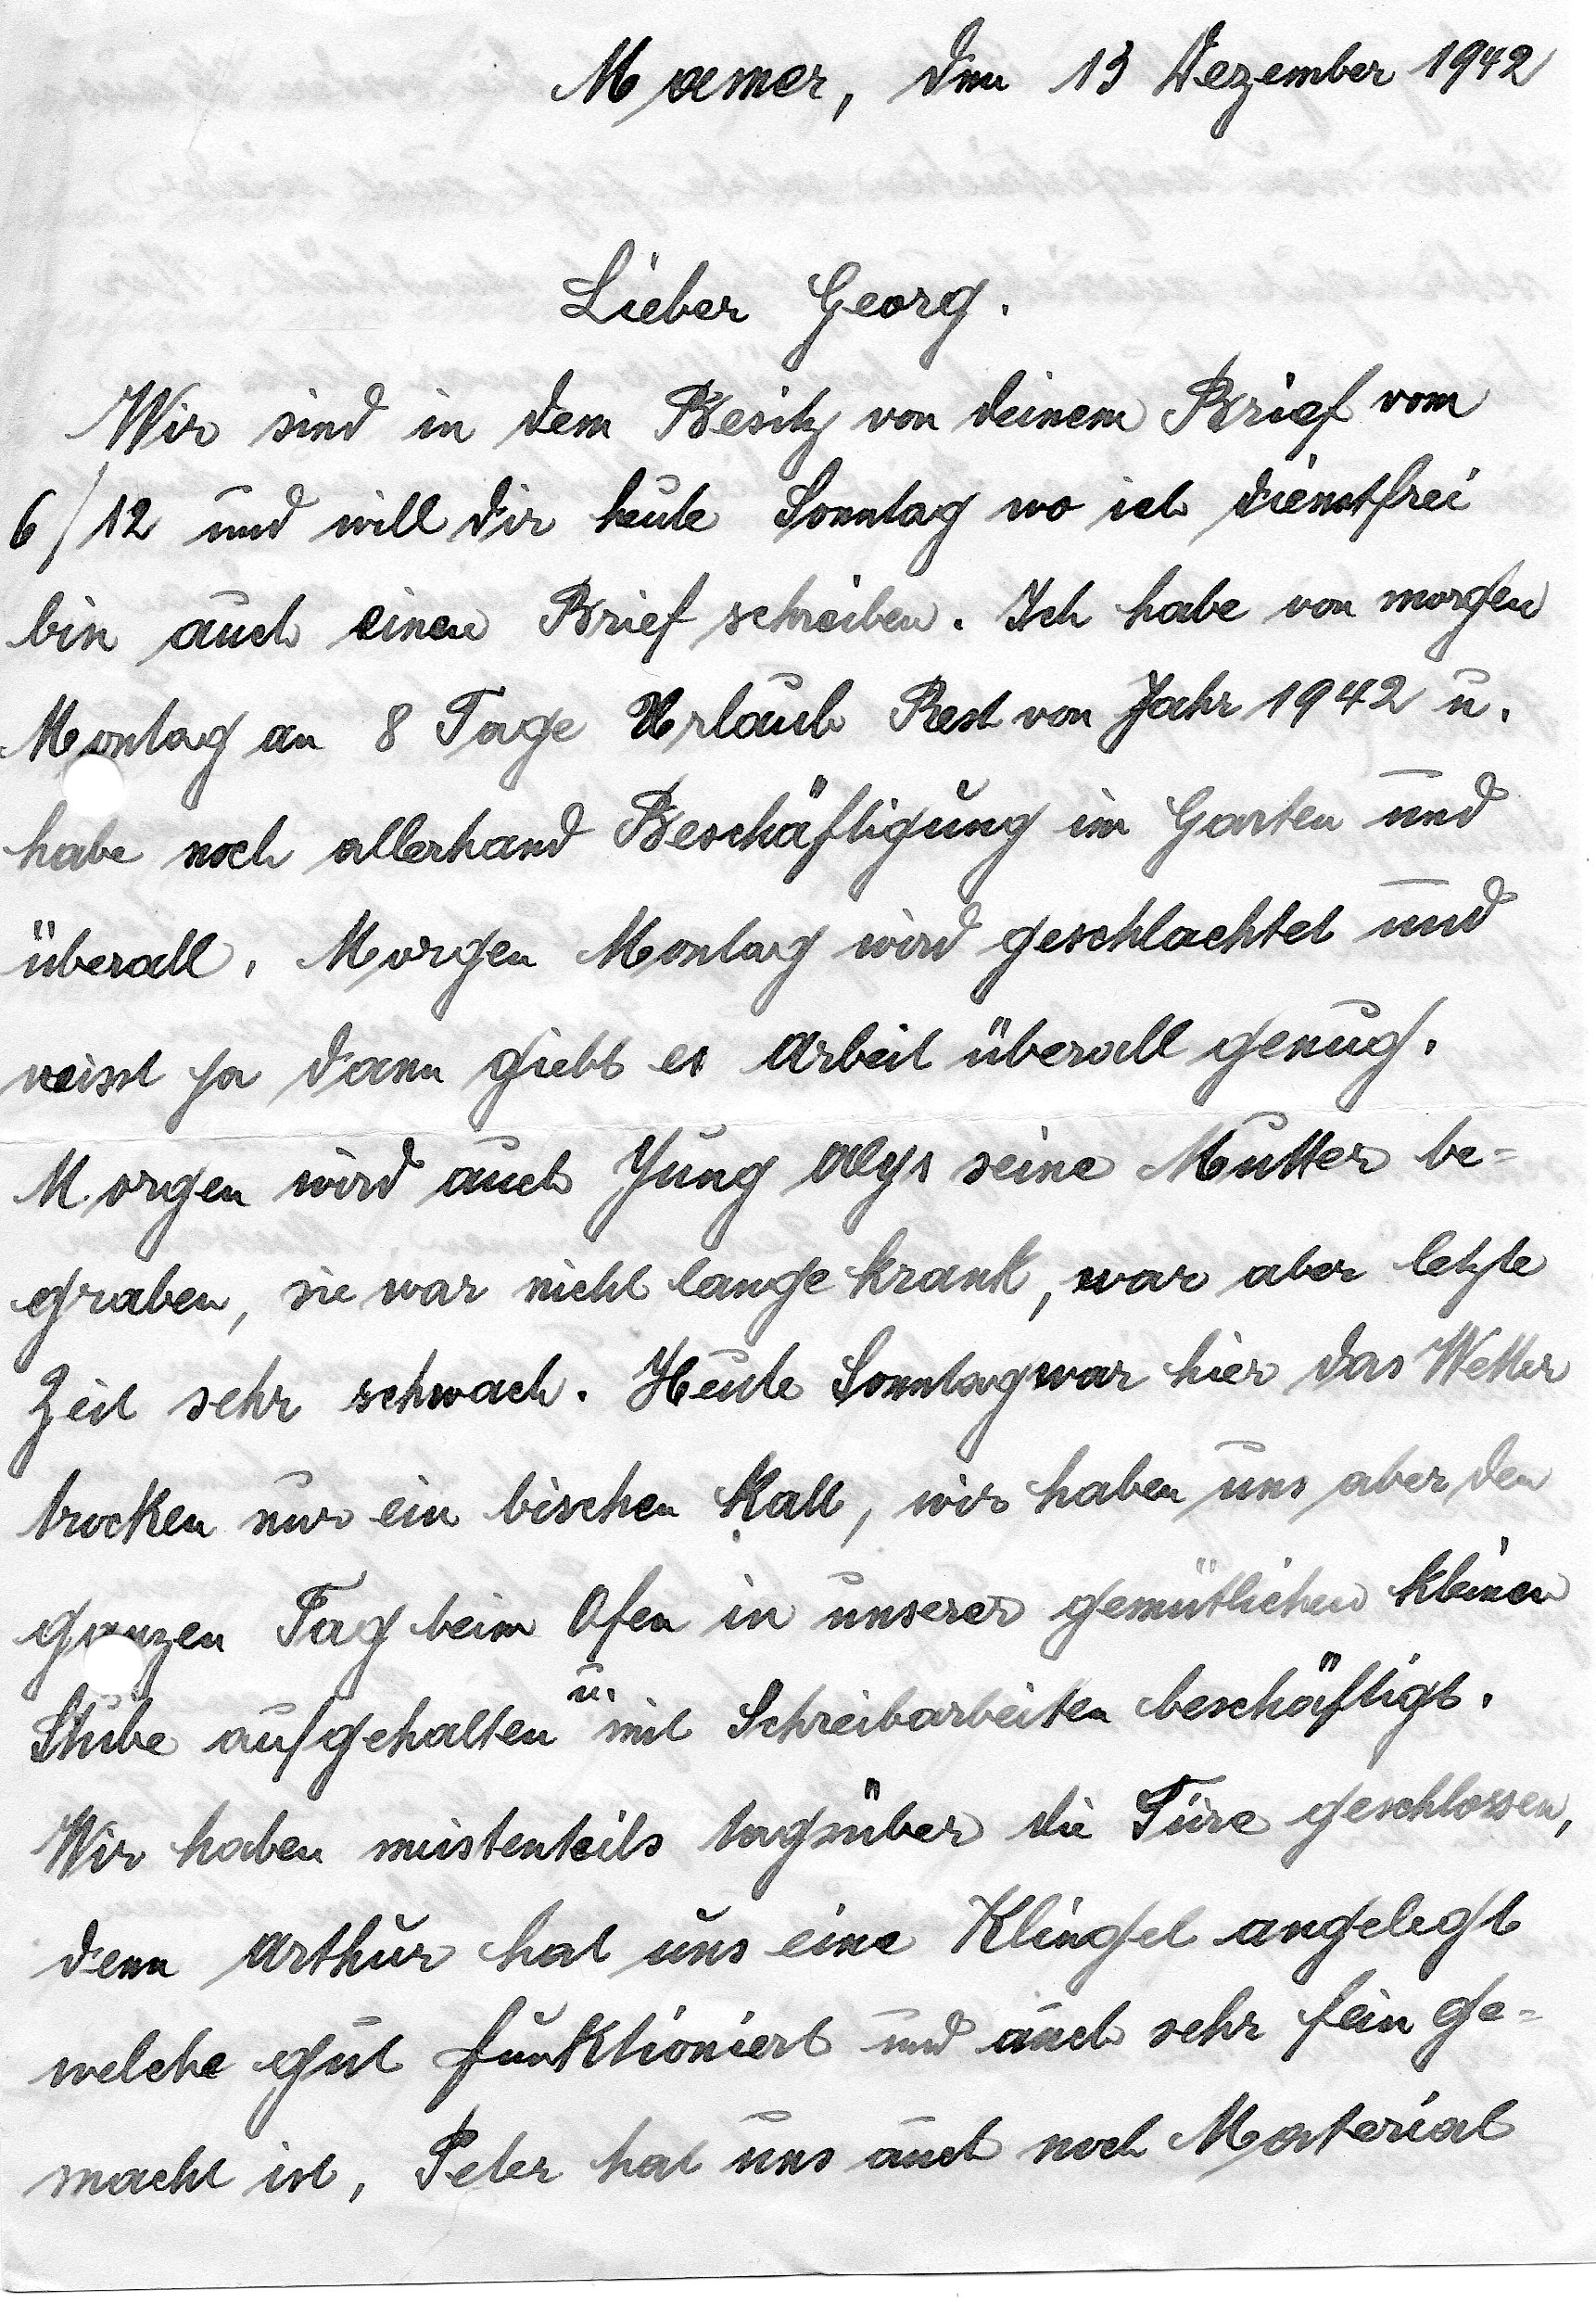 Mamer, den 13 Dezember 1942
Lieber Georg.
Wir sind in dem Besitz von deinem Brief vom
6/12 und will dir heute Sonntag wo ich dienstfrei
bin auch einen Brief schreiben. Ich habe von morgen
Montag an 8 Tage Urlaub Rest von Jahr 1942 u.
habe noch allerhand Beschäftigung im Garten und
überall. Morgen Montag wird geschlachtet und
weisst ja dann giebt es Arbeit überall genug.
Morgen wird auch Jung Alys seine Mutter be=
graben, sie war nicht lange krank, war aber letzte
Zeit sehr schwach. Heute Sonntag war hier das Wetter
trocken nur ein bischen Kalt, wir haben uns aber den
ganzen Tag beim Ofen in unserer gemütlichen kleinen
Stube aufgehalten u. mit Schreibarbeiten beschäftigt.
Wir haben meistenteils tagsüber die Türe geschlossen,
denn Arthur hat uns eine Klingel angelegt
welche gut funktioniert und auch sehr fein ge=
macht ist, Peter hat uns auch noch Material